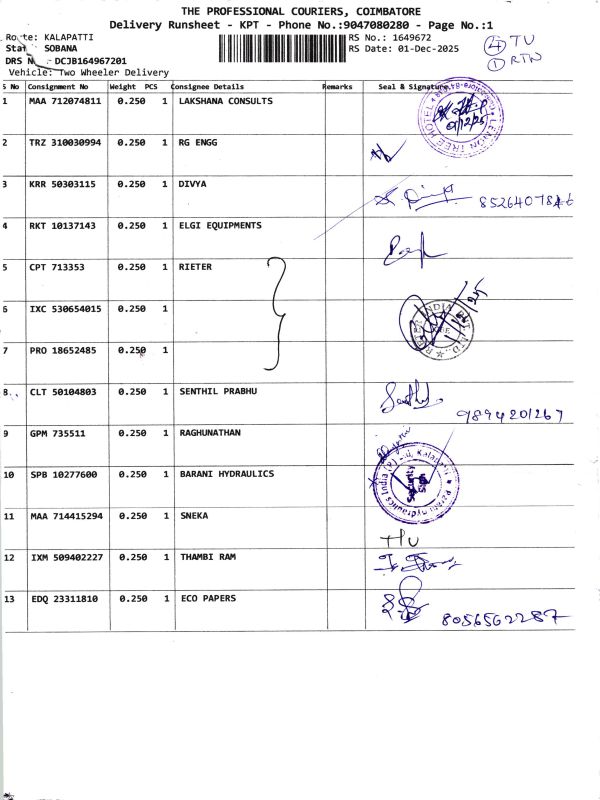 THE PROFESSIONAL COURIERS, COIMBATORE
Delivery Runsheet - KPT - Phone No.:9047080280 - Page No.:1
Route: KALAPATTI
RS No.: 1649672
④ TU
SOBANA
RS Date: 01-Dec-2025
① RTN
DRS No :- DCJB164967201
Vehicle: Two Wheeler Delivery
S No Consignment No Weight PCS Consignee Details Remarks Seal & Signature
1 MAA 712074811 0.250 1 LAKSHANA CONSULTS
LEMON TREE HOTEL
2 TRZ 310030994 0.250 1 RG ENGG
3 KRR 50303115 0.250 1 DIVYA
4 RKT 10137143 0.250 1 ELGI EQUIPMENTS
5 CPT 713353 0.250 1 RIETER
6 IXC 530654015 0.250 1
7 PRO 18652485 0.250 1
8 CLT 50104803 0.250 1 SENTHIL PRABHU
9894201267
9 GPM 735511 0.250 1 RAGHUNATHAN
10 SPB 10277600 0.250 1 BARANI HYDRAULICS
Security
11 MAA 714415294 0.250 1 SNEKA
12 IXM 509402227 0.250 1 THAMBI RAM
13 EDQ 23311810 0.250 1 ECO PAPERS
8056562287